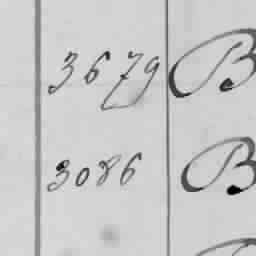 3679 B
3086 B